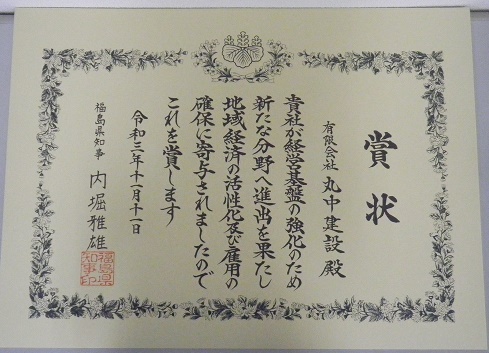 賞状
有限会社 丸中建設 殿
貴社が経営基盤の強化のため
新たな分野へ進出を果たし
地域経済の活性化及び雇用の
確保に寄与されましたので
これを賞します
令和三年十一月十一日
福島県知事 内堀雅雄
福島県
知事印